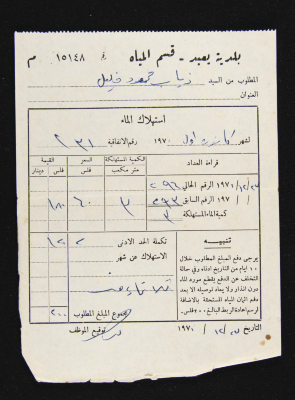 بلدية يعبد - قسم المياه № ١٥١٤٨ م
المطلوب من السيد ذياب
العنوان
استهلاك الماء
لشهر كانون اول ١٩٧٠ رقم الاتفاقية ٢٣١
قراءة العداد الكمية المستهلكة السعر القيمة
متر مكعب فلس فلس دينار
١٩٧١/١٢/ الرقم الحالي ٢٩٦
١٩٧ الرقم السابق ٢٩٣ ٣ ٦٠ ١٨٠
كمية الماء المستهلكة ٣
تنبيه
يرجى دفع المبلغ المطلوب خلال
١٠ ايام من التاريخ ادناه وفي حالة
التخلف عن الدفع يقطع مورد الماء
دون انذار ولا يعاد توصيله الا بعد
دفع اثمان المياه المستحقة بالاضافة
لرسم اعادة الربط البالغ ٥٠٠ فلس.
تكملة الحد الادنى
الاستهلاك عن شهر
مجموع المبلغ المطلوب ٢٠٠
التاريخ ١٩٧٠/١٢/ توقيع الموظف